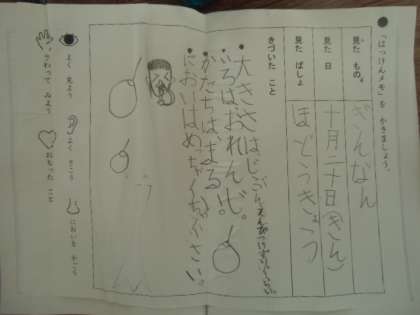 「はっけんメモ」を かきましょう。
見た もの
ぎんなん
見た 日
十月二十日(きん)
見た ばしょ
ほどうきょう
きづいた こと
・大きさはじしゃ
・いろはおれんじ。
・かたちは、まるい。
・においはめっちゃくちゃくさい。
よく 見よう
よく きこう
においを かごう
さわって みよう
おもった こと